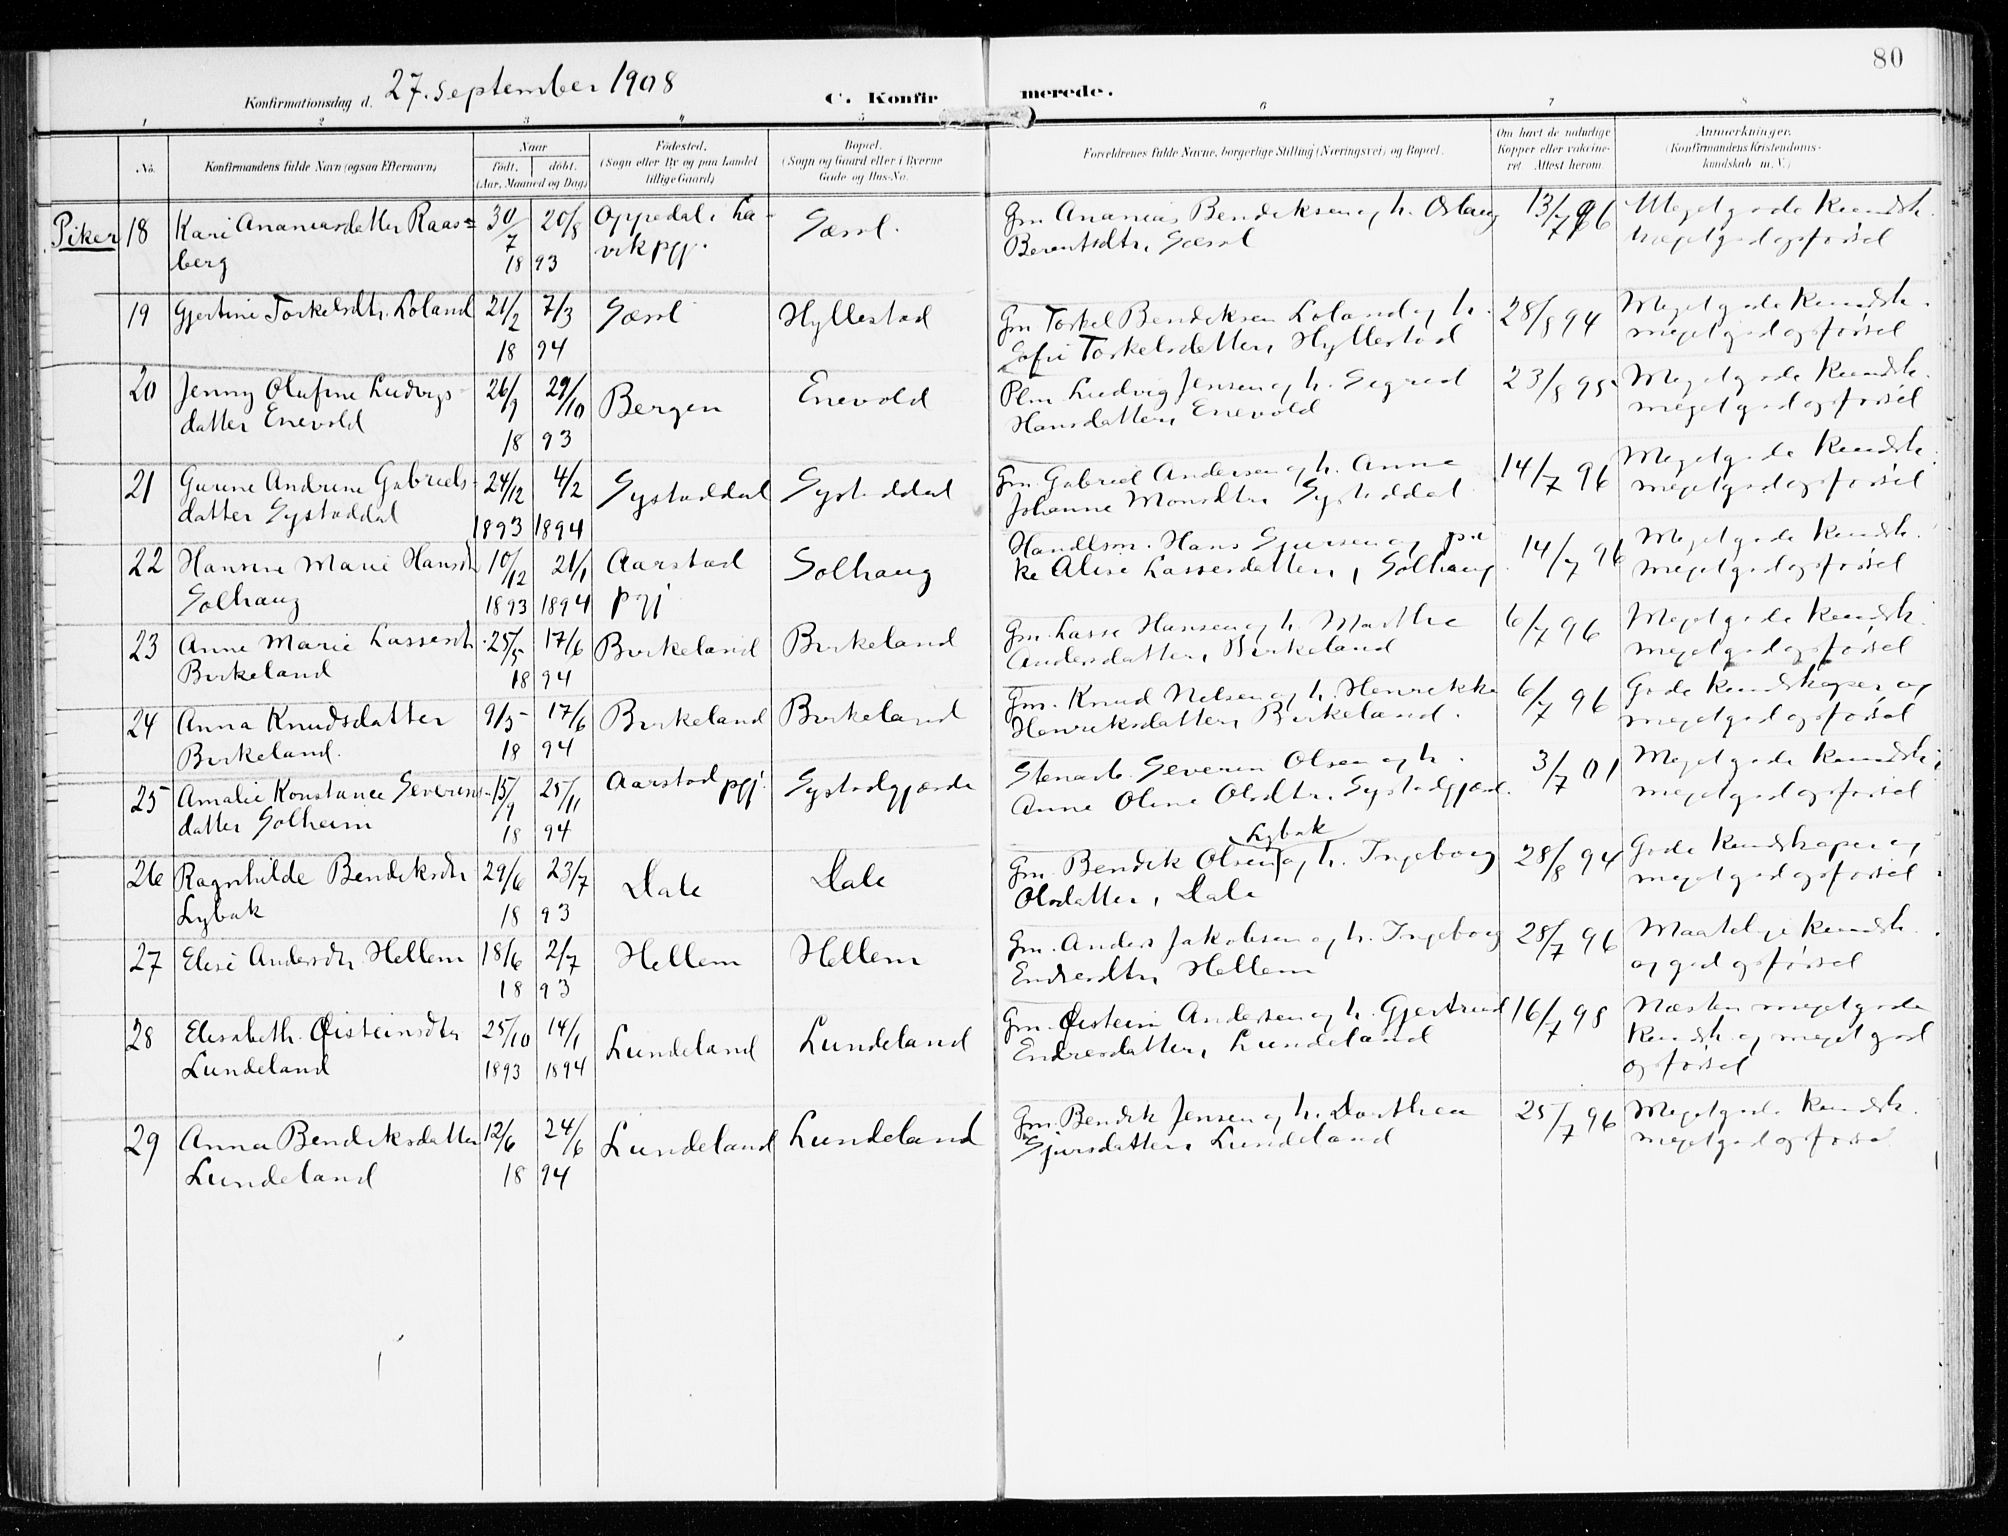 80
Konfirmationsdag d. 27. september 1908
C. Konfirmerede.
1 2 3 4 5 6 7 8
No.
Konfirmandens fulde Navn (ogsaa Efternavn)
Naar
födt. döbt.
(Aar, Maaned og Dag)
Födested.
(Sogn eller By og paa Landet
tillige Gaard)
Bopæl.
(Sogn og Gaard eller i Byerne
Gade og Hus-No.
Forældrenes fulde Navne, borgerlige Stilling (Næringsvei) og Bopæl.
Om havt de naturlige
Kopper eller vaccine-
ret. Attest herom.
Anmærkninger.
(Konfirmandens Kristendoms-
kundskab m. V.)
Piker 18 Kari Ananiasdatter Raas= 30/7 20/8 Oppedal i La- Sæsol. Gm. Ananias Bendiksen og h. Oslaug 13/7 96 Meget gode Kundsk.
berg 18 93 vik pgj. Berentsdtr, Sæsol meget god opførsel
19 Gjertine Torkelsdtr. Loland 21/2 7/3 Sæsol Hyllestad Gm Torkel Bendiksen Loland og h. 28/8 94 Meget gode Kundsk.
18 94 Sofie Torkelsdatter, Hyllestad meget god opførsel
20 Jenny Olufine Ludvigs- 26/9 29/10 Bergen Enevold Plm Ludvig Jensen og h. Sigrid 23/8 95 Meget gode Kundsk.
datter Enevold 18 93 Hansdatter, Enevold meget god opførsel
21 Gurine Andrine Gabriels- 24/12 4/2 Systaddal Systaddal Gm. Gabriel Andersen og h. Anne 14/7 96 Meget gode Kundsk.
datter Systaddal 1893 1894 Johanne Monsdtr, Systaddal meget god opførsel
22 Hansine Marie Hansdtr 10/12 21/1 Aarstad Solhaug Handlsm. Hans Sjursen og pi- 14/7 96 Meget gode Kundsk.
Solhaug 1893 1894 pgj ke Alise Lassesdatter, Solhaug meget god opførsel
23 Anne Marie Lassesdtr 25/5 17/6 Birkeland Birkeland Gm. Lasse Hansen og h. Marthe 6/7 96 Meget gode Kundsk.
Birkeland 18 94 Andersdatter, Birkeland meget god opførsel
24 Anna Knudsdatter 9/5 17/6 Birkeland Birkeland Gm. Knud Nelsen og h. Henrikke 6/7 96 Gode Kundskaper og
Birkeland. 18 94 Henriksdatter, Birkeland. meget god opførsel
25 Amalie Konstance Severins- 15/9 25/11 Aarstad pgj. Systadgjærde Stenarb. Severin Olsen og h. 3/7 01 Meget gode Kundsk.
datter Solheim 18 94 Anne Oline Olsdtr, Systadgjærd. meget god opførsel
26 Ragnhilde Bendiksdtr 29/6 23/7 Dale Dale Gm. Bendik Olsen Lybak og h. Ingeborg 28/8 94 Gode Kundskaper og
Lybak 18 93 Olsdatter, Dale meget god opførsel
27 Elise Andersdtr Hellem 18/6 2/7 Hellem Hellem Gm. Anders Jakobsen og h. Ingeborg 28/7 96 Maatelige Kundsk.
18 93 Endresdtr, Hellem og god opførsel
28 Elisabeth Øisteinsdtr 25/10 14/1 Lundeland Lundeland Gm. Øistein Andersen og h. Gjertrud 16/7 98 Næsten meget gode
Lundeland 1893 1894 Endresdatter, Lundeland Kundsk. og meget god
opførsel
29 Anna Bendiksdatter 12/6 24/6 Lundeland Lundeland Gm. Bendik Jensen og h. Dorthea 25/7 96 Meget gode Kundsk.
Lundeland 18 94 Sjursdatter, Lundeland meget god opførsel